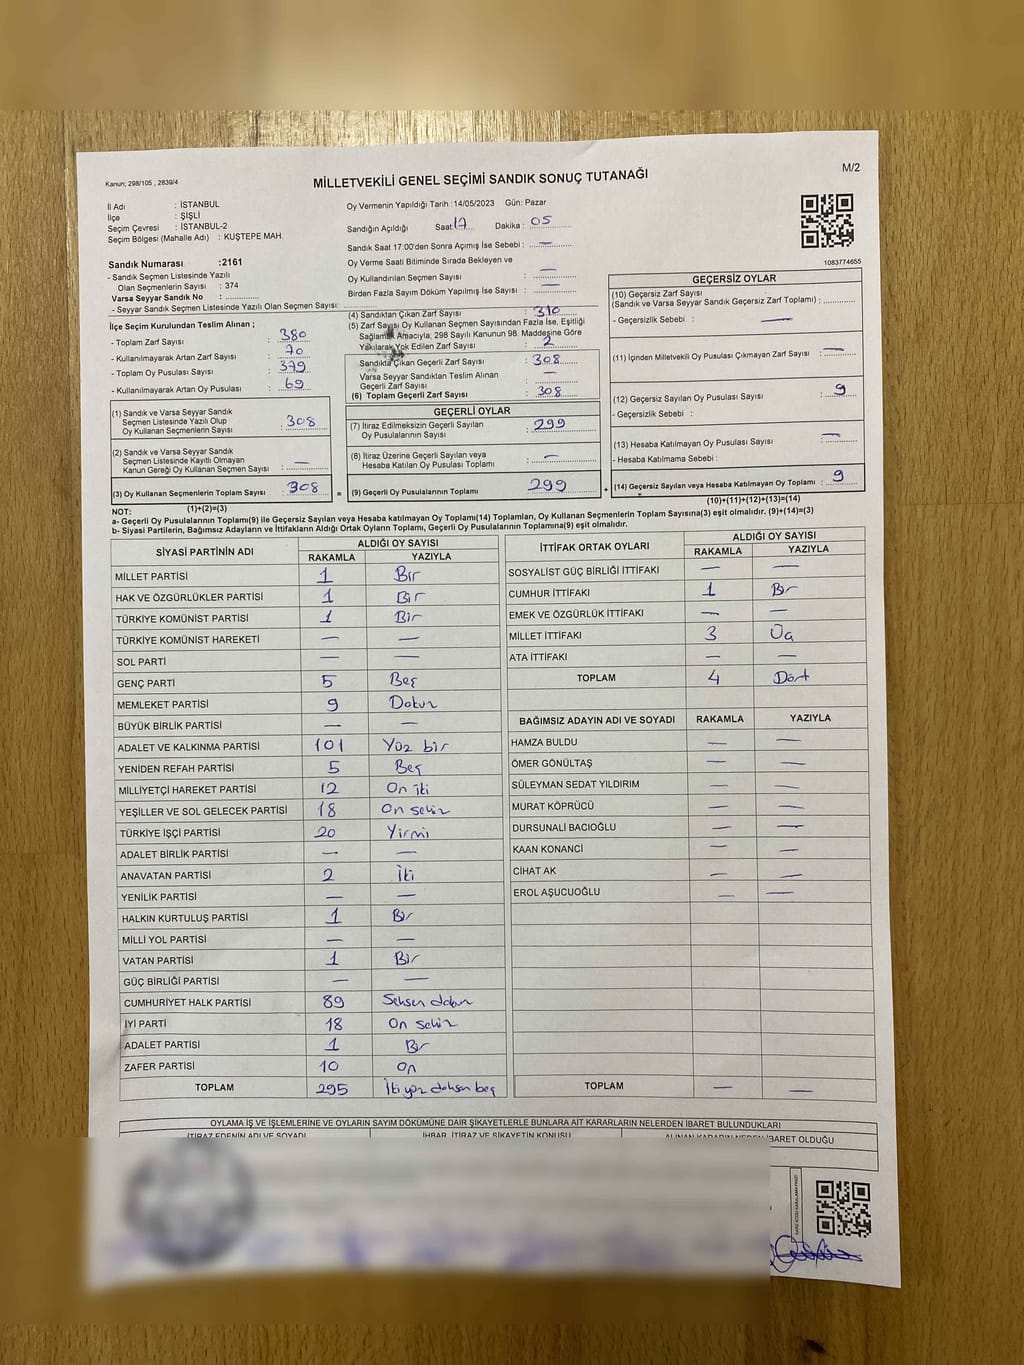 Kanun; 298/105 , 2839/4
M/2
MİLLETVEKİLİ GENEL SEÇİMİ SANDIK SONUÇ TUTANAĞI
İl Adı : İSTANBUL
İlçe : ŞİŞLİ
Seçim Çevresi : İSTANBUL-2
Seçim Bölgesi (Mahalle Adı) : KUŞTEPE MAH.
Sandık Numarası :2161
- Sandık Seçmen Listesinde Yazılı
Olan Seçmenlerin Sayısı : 374
Varsa Seyyar Sandık No :
- Seyyar Sandık Seçmen Listesinde Yazılı Olan Seçmen Sayısı:
Oy Vermenin Yapıldığı Tarih :14/05/2023 Gün: Pazar
Sandığın Açıldığı Saat:17 Dakika : 05
Sandık Saat 17:00'den Sonra Açımış İse Sebebi : —
Oy Verme Saati Bitiminde Sırada Bekleyen ve
Oy Kullandırılan Seçmen Sayısı : —
Birden Fazla Sayım Döküm Yapılmış İse Sayısı : —
1083774655
İlçe Seçim Kurulundan Teslim Alınan ;
- Toplam Zarf Sayısı : 380
- Kullanılmayarak Artan Zarf Sayısı : 70
- Toplam Oy Pusulası Sayısı : 379
- Kullanılmayarak Artan Oy Pusulası : 69
(1) Sandık ve Varsa Seyyar Sandık
Seçmen Listesinde Yazılı Olup
Oy Kullanan Seçmenlerin Sayısı : 308
(2) Sandık ve Varsa Seyyar Sandık
Seçmen Listesinde Kayıtlı Olmayan
Kanun Gereği Oy Kullanan Seçmen Sayısı : —
(3) Oy Kullanan Seçmenlerin Toplam Sayısı : 308
(1)+(2)=(3)
(4) Sandıktan Çıkan Zarf Sayısı : 310
(5) Zarf Sayısı Oy Kullanan Seçmen Sayısından Fazla İse, Eşitliği
Sağlamak Amacıyla; 298 Sayılı Kanunun 98. Maddesine Göre
Yakılarak Yok Edilen Zarf Sayısı : 2
Sandıkta Çıkan Geçerli Zarf Sayısı : 308
Varsa Seyyar Sandıktan Teslim Alınan
Geçerli Zarf Sayısı : —
(6) Toplam Geçerli Zarf Sayısı : 308
GEÇERLİ OYLAR
(7) İtiraz Edilmeksizin Geçerli Sayılan
Oy Pusulalarının Sayısı : 299
(8) İtiraz Üzerine Geçerli Sayılan veya
Hesaba Katılan Oy Pusulası Toplamı : —
= (9) Geçerli Oy Pusulalarının Toplamı : 299
GEÇERSİZ OYLAR
(10) Geçersiz Zarf Sayısı
(Sandık ve Varsa Seyyar Sandık Geçersiz Zarf Toplamı) :
- Geçersizlik Sebebi : —
(11) İçinden Milletvekili Oy Pusulası Çıkmayan Zarf Sayısı : —
(12) Geçersiz Sayılan Oy Pusulası Sayısı : 9
- Geçersizlik Sebebi :
(13) Hesaba Katılmayan Oy Pusulası Sayısı : —
- Hesaba Katılmama Sebebi :
+ (14) Geçersiz Sayılan veya Hesaba Katılmayan Oy Toplamı : 9
(10)+(11)+(12)+(13)=(14)
NOT:
a- Geçerli Oy Pusulalarının Toplamı(9) ile Geçersiz Sayılan veya Hesaba Katılmayan Oy Toplamı(14) Toplamları, Oy Kullanan Seçmenlerin Toplam Sayısına(3) eşit olmalıdır. (9)+(14)=(3)
b- Siyasi Partilerin, Bağımsız Adayların ve İttifakların Aldığı Ortak Oyların Toplamı, Geçerli Oy Pusulalarının Toplamına(9) eşit olmalıdır.
SİYASİ PARTİNİN ADI ALDIĞI OY SAYISI
RAKAMLA YAZIYLA
MİLLET PARTİSİ 1 Bir
HAK VE ÖZGÜRLÜKLER PARTİSİ 1 Bir
TÜRKİYE KOMÜNİST PARTİSİ 1 Bir
TÜRKİYE KOMÜNİST HAREKETİ — —
SOL PARTİ — —
GENÇ PARTİ 5 Beş
MEMLEKET PARTİSİ 9 Dokuz
BÜYÜK BİRLİK PARTİSİ — —
ADALET VE KALKINMA PARTİSİ 101 Yüz bir
YENİDEN REFAH PARTİSİ 5 Beş
MİLLİYETÇİ HAREKET PARTİSİ 12 On iki
YEŞİLLER VE SOL GELECEK PARTİSİ 18 On sekiz
TÜRKİYE İŞÇİ PARTİSİ 20 Yirmi
ADALET BİRLİK PARTİSİ — —
ANAVATAN PARTİSİ 2 İki
YENİLİK PARTİSİ — —
HALKIN KURTULUŞ PARTİSİ 1 Bir
MİLLİ YOL PARTİSİ — —
VATAN PARTİSİ 1 Bir
GÜÇ BİRLİĞİ PARTİSİ — —
CUMHURİYET HALK PARTİSİ 89 Seksen dokuz
İYİ PARTİ 18 On sekiz
ADALET PARTİSİ 1 Bir
ZAFER PARTİSİ 10 On
TOPLAM 295 İki yüz doksan beş
İTTİFAK ORTAK OYLARI ALDIĞI OY SAYISI
RAKAMLA YAZIYLA
SOSYALİST GÜÇ BİRLİĞİ İTTİFAKI — —
CUMHUR İTTİFAKI 1 Bir
EMEK VE ÖZGÜRLÜK İTTİFAKI — —
MİLLET İTTİFAKI 3 Üç
ATA İTTİFAKI — —
TOPLAM 4 Dört
BAĞIMSIZ ADAYIN ADI VE SOYADI RAKAMLA YAZIYLA
HAMZA BULDU — —
ÖMER GÖNÜLTAŞ — —
SÜLEYMAN SEDAT YILDIRIM — —
MURAT KÖPRÜCÜ — —
DURSUNALİ BACIOĞLU — —
KAAN KONANCİ — —
CİHAT AK — —
EROL AŞUCUOĞLU — —
TOPLAM — —
OYLAMA İŞ VE İŞLEMLERİNE VE OYLARIN SAYIM DÖKÜMÜNE DAİR ŞİKAYETLERLE BUNLARA AİT KARARLARIN NELERDEN İBARET BULUNDUKLARI
İTİRAZ EDENİN ADI VE SOYADI İHBAR, İTİRAZ VE ŞİKAYETİN KONUSU ALINAN KARARIN NEDEN İBARET OLDUĞU